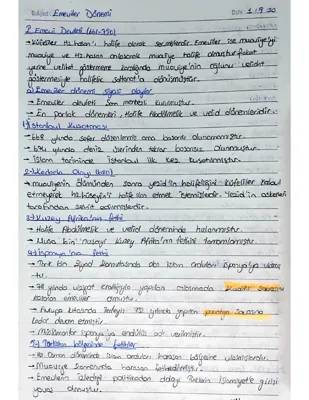 Emeviler Dönemi
2. Emevi Devleti (661-750)
→ Küfeliler Hz. Hasan'ı halife olarak seçmişlerdir. Emeviler ise muaviye'yi
muaviye ve Hz. Hasan anlaşarak muaviye halife olmuştur fakat
yerine veliaht göstermeme karşılığında muaviye'nin oğlunu veliaht
göstermesiyle halifelik saltanat'a dönüşmüştür.
a) Emeviler dönemi siyasi olaylar
→ Emeviler devleti Şam merkezli kurulmuştur.
→ En parlak dönemleri, Halife Abdülmelik ve velid dönemleridir.
1-) İstanbul Kuşatması
→ 668 yılında sefer düzenlenmiş ama başarılı olunamamıştır.
→ 674 yılında deniz üzerinden tekrar başarısız olunmuştur.
→ İslam tarihinde İstanbul ilk kez kuşatılmıştır.
2-) Kerbela Olayı (680)
→ muaviyenin ölümünden sonra yezid'in halifeliğini küfeliler kabul
etmeyerek Hz. Hüseyin'i halife ilan etmek istemişlerdir. Yezid'in askerleri
tarafından şehit edilmişlerdir.
3-) Kuzey Afrika'nın fethi
→ Halife Abdülmelik ve velid döneminde hızlanmıştır.
→ Musa bin Nusayr Kuzey Afrika'nın fethini tamamlamıştır.
4-) İspanya'nın fethi
→ Tarık bin Ziyad komutasında olan İslam orduları İspanya'ya
tu.
yılında Vizigot krallığıyla yapılan Kadiks Savaşını
kazanan emeviler olmuştu.
→ Avrupa kıtasında ilerleyiş 732 yılında yapılan puvatya Savaşına
kadar devam etmiştir.
→ Müslümanlar İspanya'ya endülüs adı vermiştir.
5-) fetihler
→ Hz. Osman döneminde İslam orduları horasan bölgesine ulaşmışlardır.
→ Muaviye zamanında horasan fethedilmiştir.
→ Emevilerin izlediği politikadan dolayı Türklerin İslamiyet'e girişi
yavaş olmuştur.